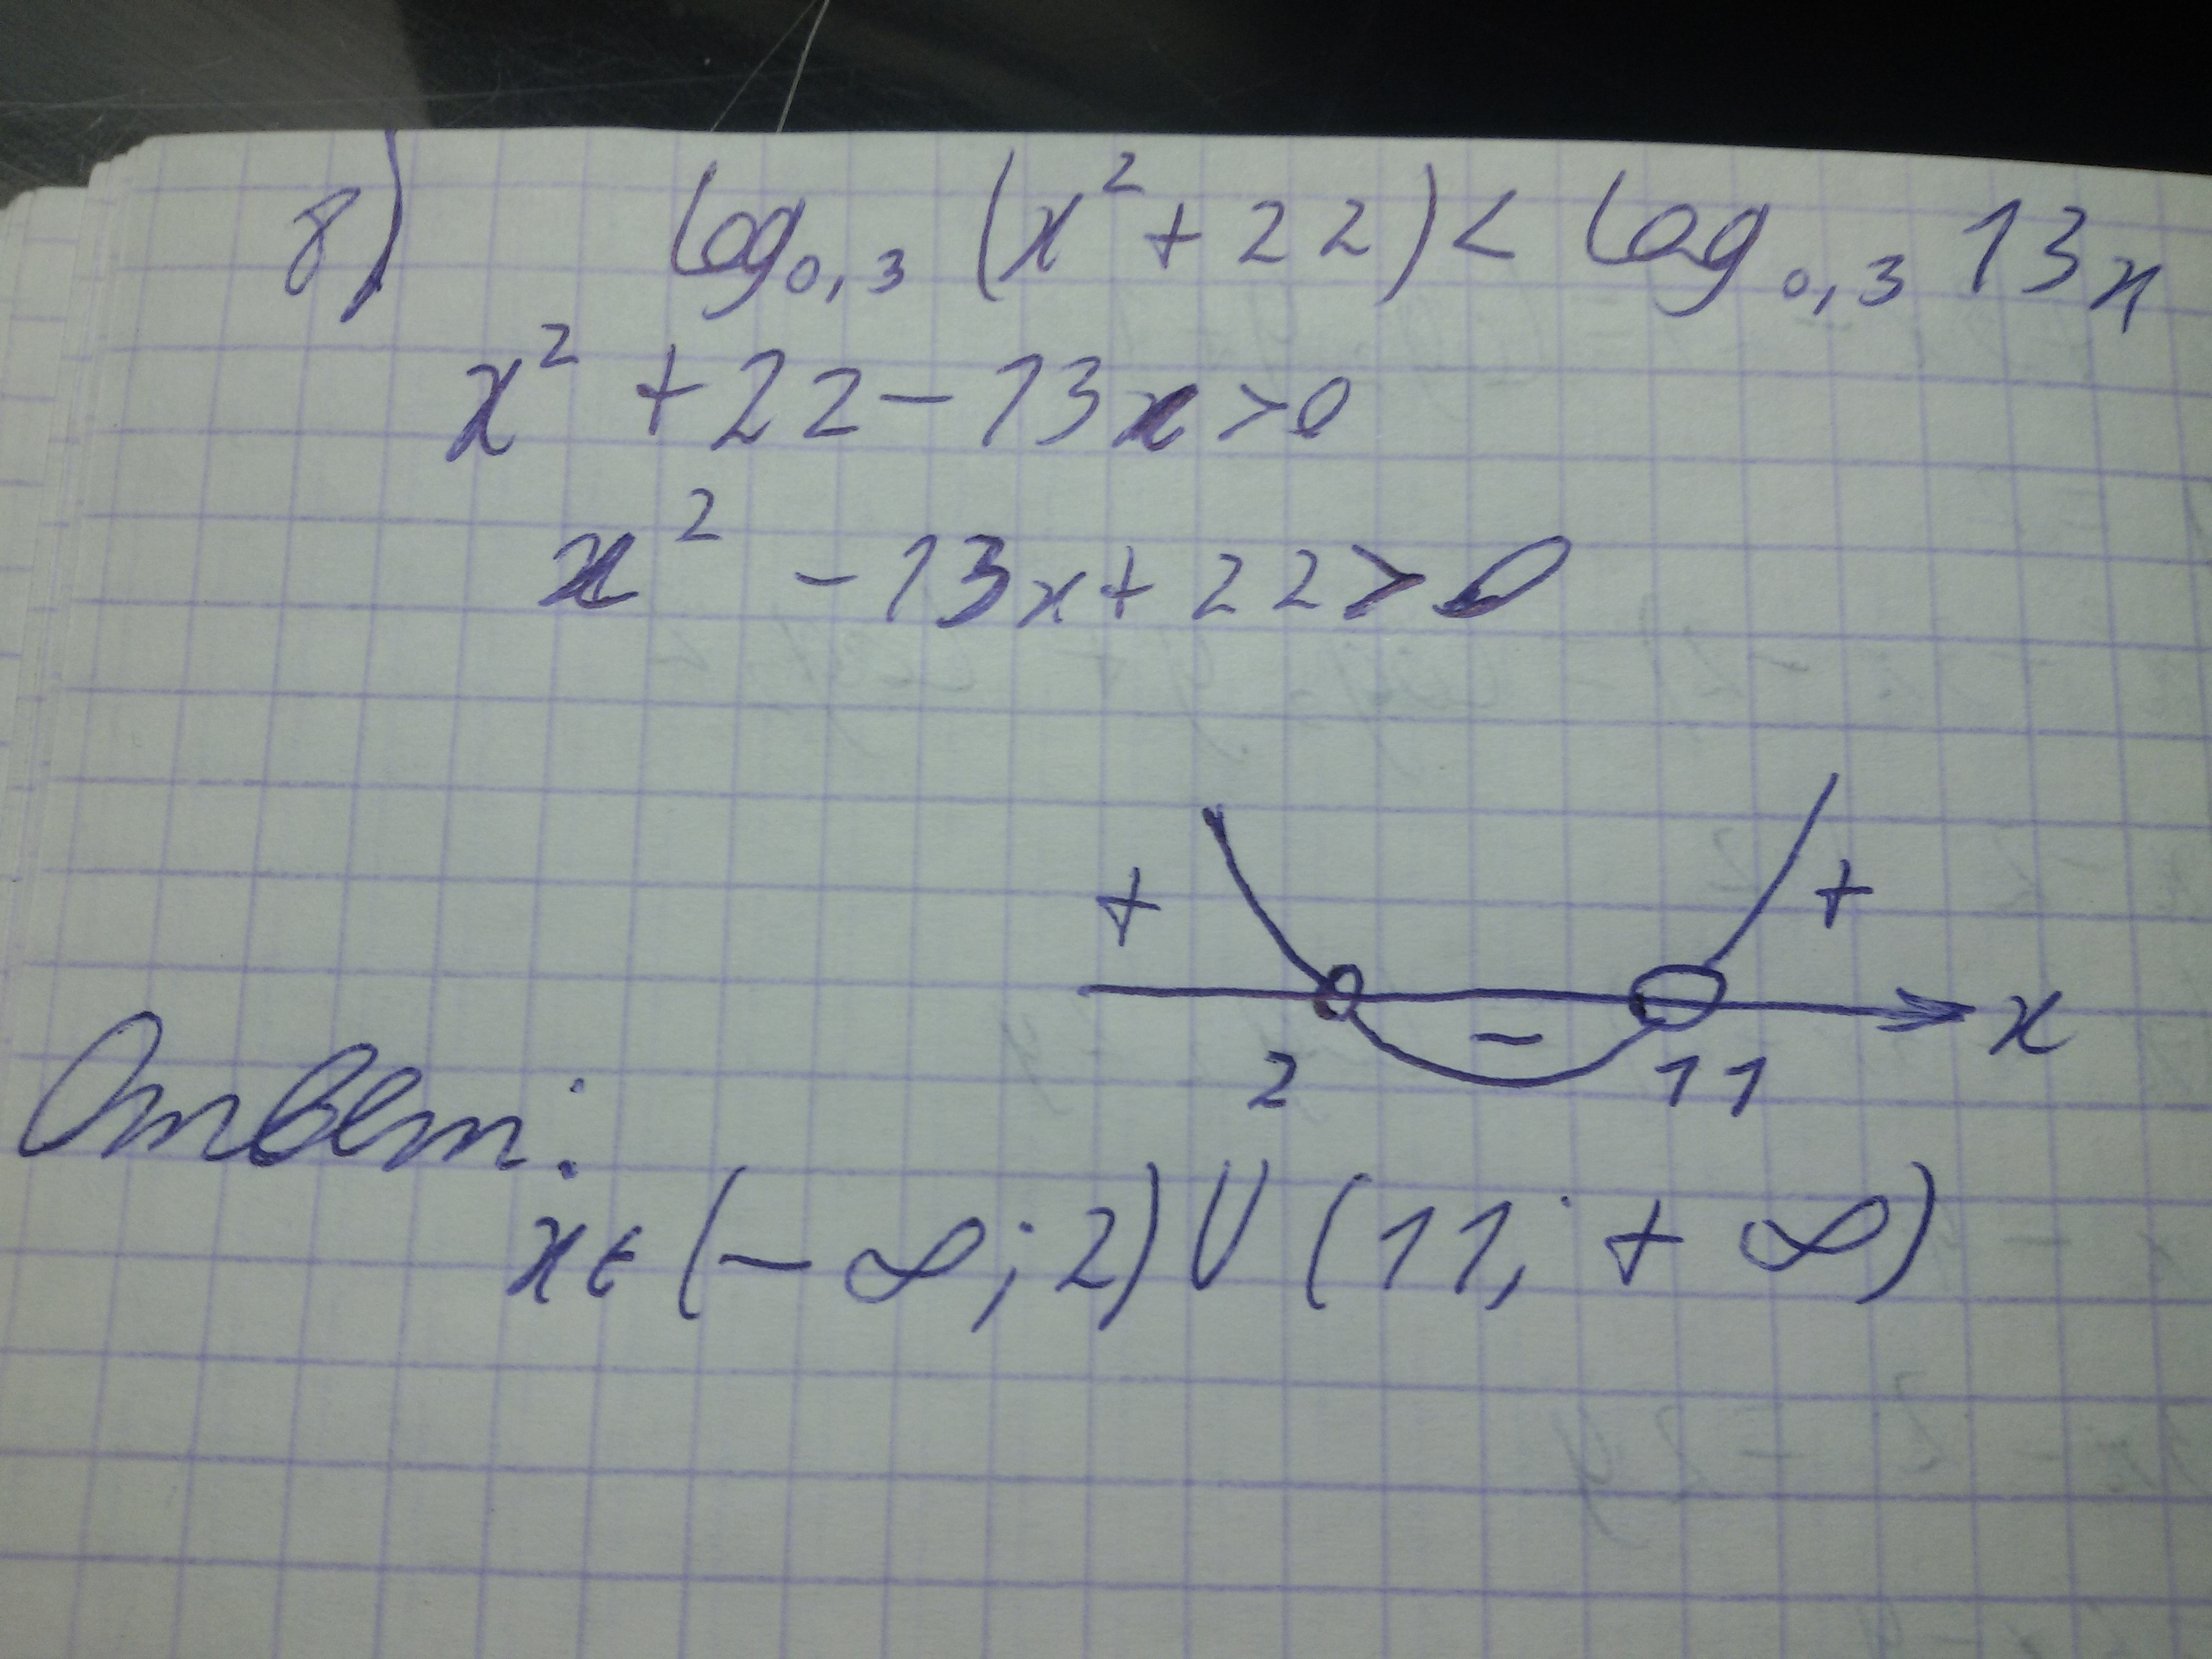 8) log₀,₃ (x² + 22) < log₀,₃ 13x
x² + 22 - 13x > 0
x² - 13x + 22 > 0
+ - +
2 11 x
Ответ:
x ∈ (-∞; 2) ∪ (11; +∞)